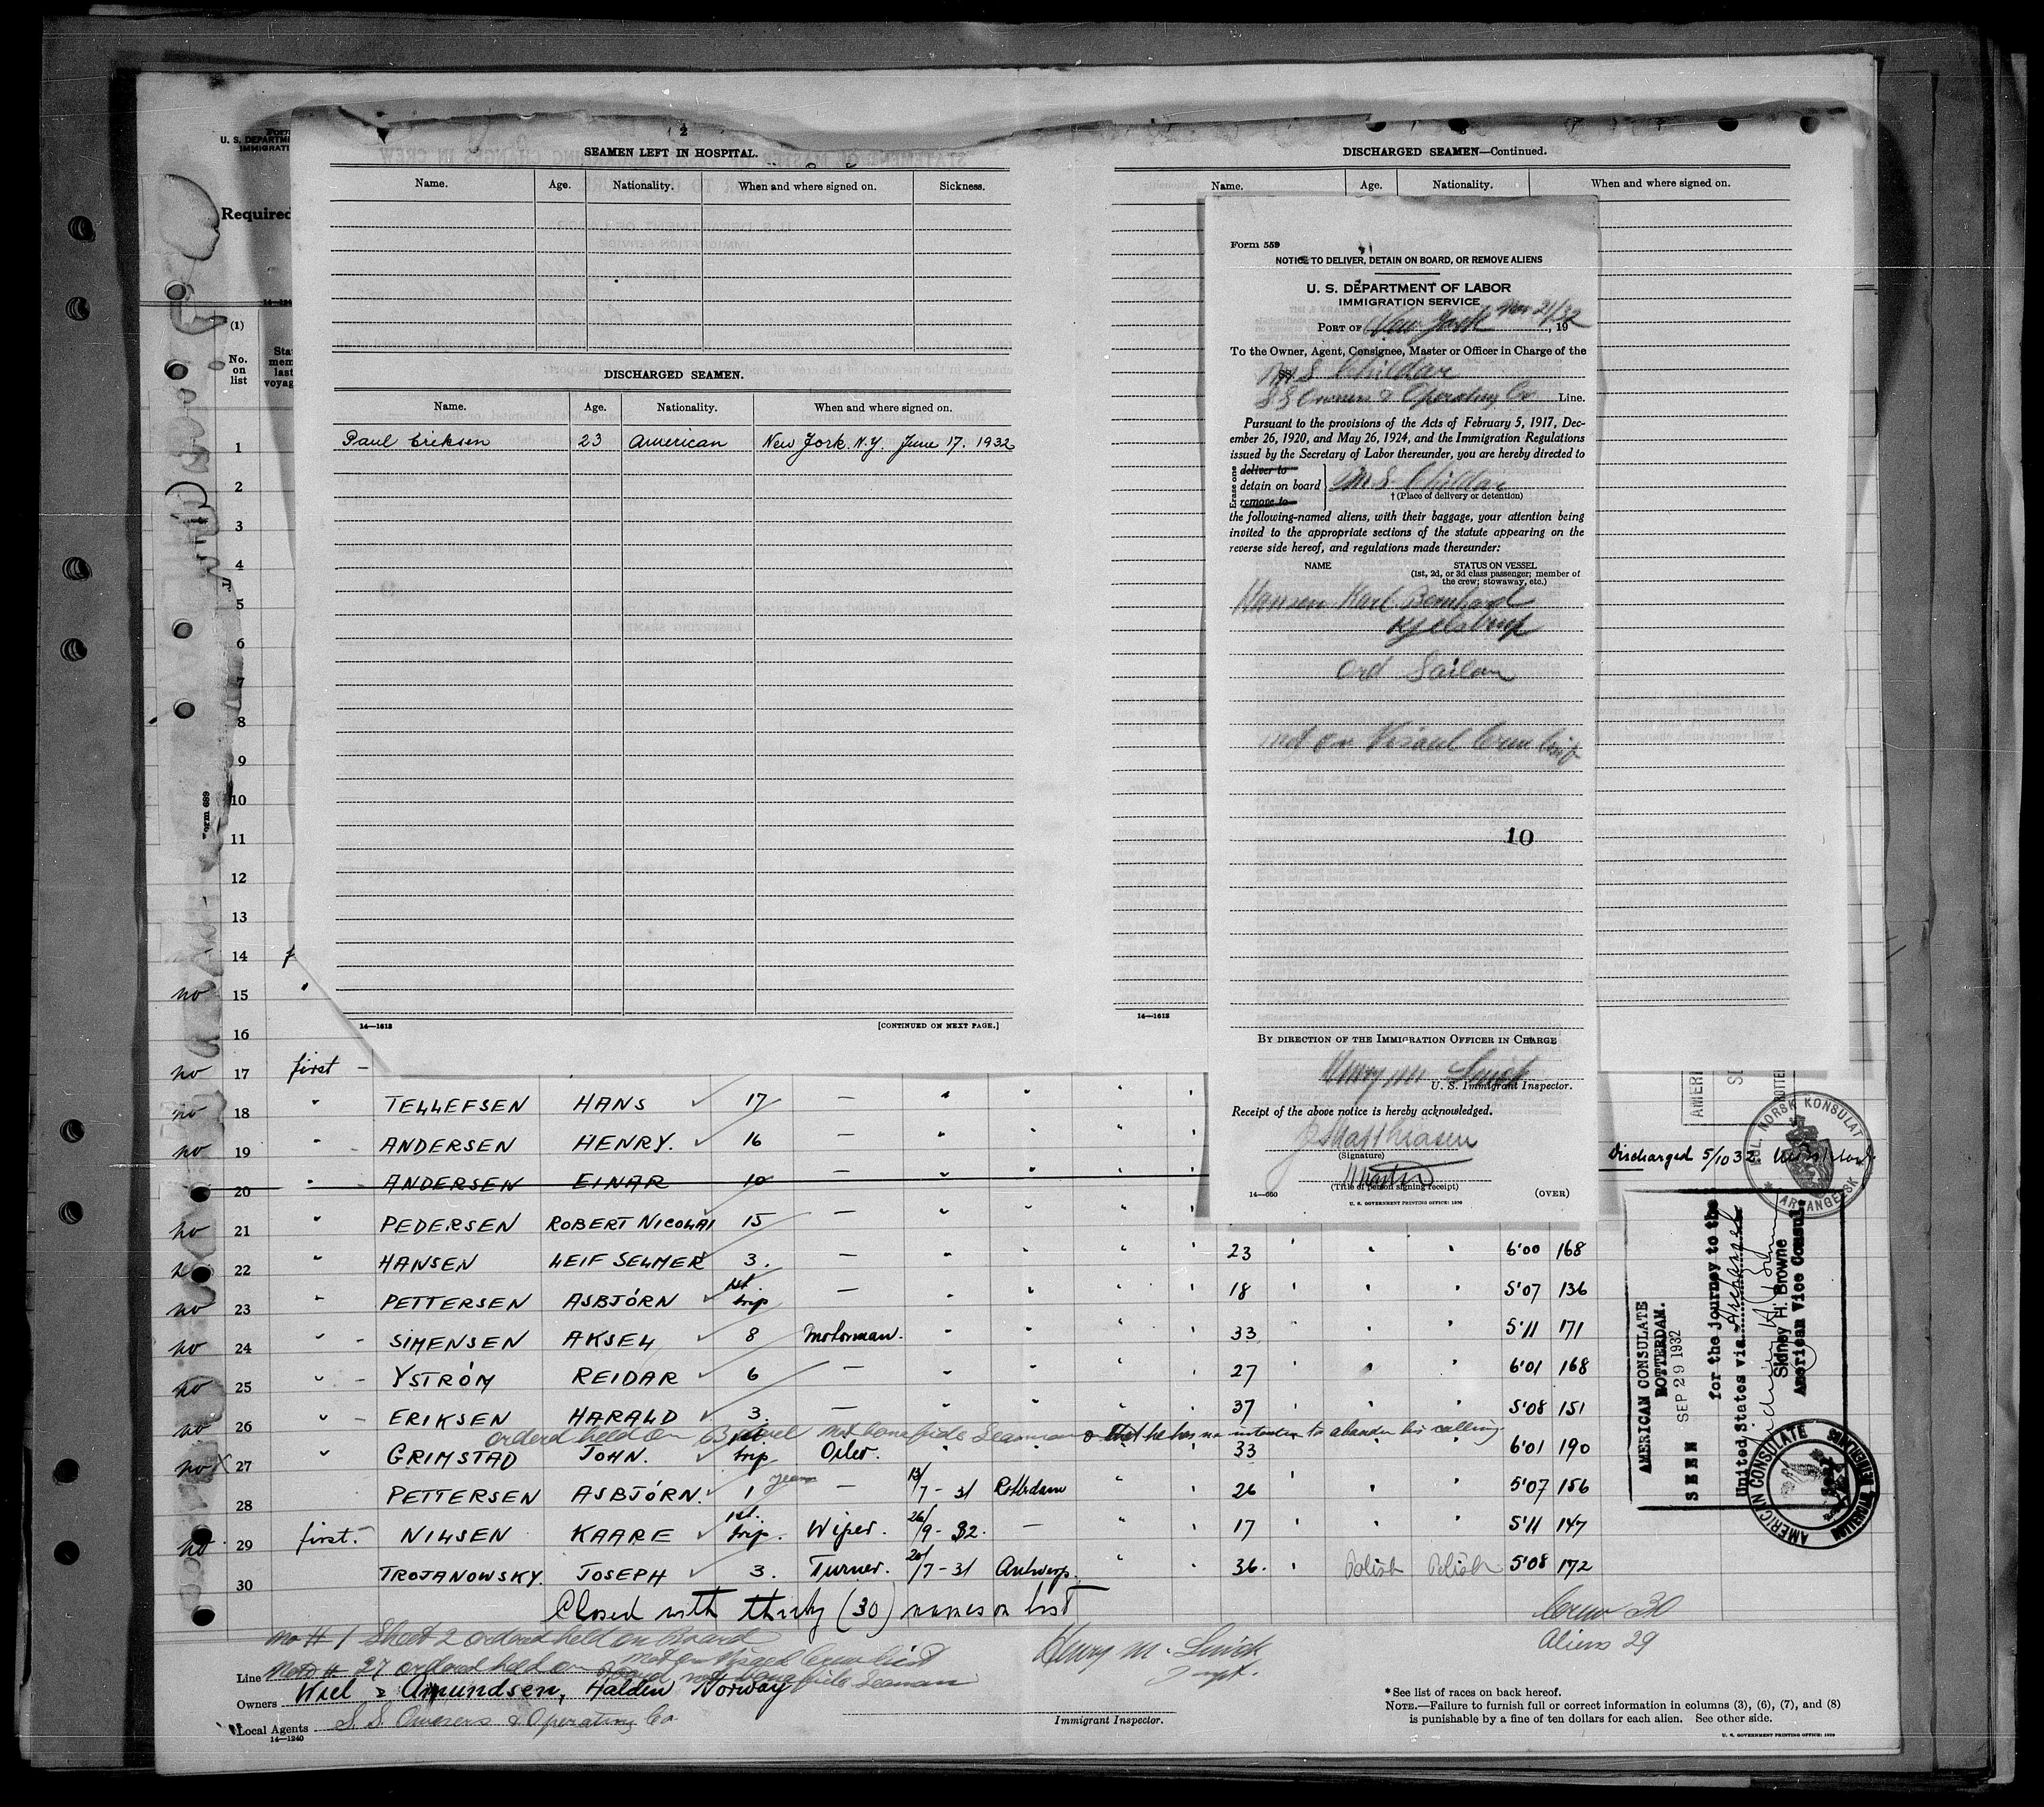 2
SEAMEN LEFT IN HOSPITAL.
Name. Age. Nationality. When and where signed on. Sickness.
DISCHARGED SEAMEN.
Name. Age. Nationality. When and where signed on.
Paul Eriksen 23 American New York. N.Y. June 17. 1932
14—1613 [CONTINUED ON NEXT PAGE.]
DISCHARGED SEAMEN—Continued.
Name. Age. Nationality. When and where signed on.
14—1613
Form 559
NOTICE TO DELIVER, DETAIN ON BOARD, OR REMOVE ALIENS
U. S. DEPARTMENT OF LABOR
IMMIGRATION SERVICE
PORT OF New York Nov 21/32, 19
To the Owner, Agent, Consignee, Master or Officer in Charge of the
SS M S Childar
S S Owners & Operating Co Line.
Pursuant to the provisions of the Acts of February 5, 1917, Dec-
ember 26, 1920, and May 26, 1924, and the Immigration Regulations
issued by the Secretary of Labor thereunder, you are hereby directed to
Erase one
deliver to
detain on board M S Childar
remove to
† (Place of delivery or detention)
the following-named aliens, with their baggage, your attention being
invited to the appropriate sections of the statute appearing on the
reverse side hereof, and regulations made thereunder:
NAME STATUS ON VESSEL
(1st, 2d, or 3d class passenger; member of
the crew; stowaway, etc.)
Hansen Karl Bernhard
Kjelstrup
Ord Sailor
not on Visaed Crew List
10
BY DIRECTION OF THE IMMIGRATION OFFICER IN CHARGE
Henry M. Smick
U. S. Immigrant Inspector.
Receipt of the above notice is hereby acknowledged.
J Matthiasen
(Signature)
Master
(Title of person signing receipt)
14—650 (OVER)
U. S. GOVERNMENT PRINTING OFFICE: 1930
Form
U. S. DEPARTME
IMMIGRATI
Required
14—124
(1)
No.
on
list
Sta
mem
last
voyag
Form 689
1
2
3
4
5
6
7
8
9
10
11
12
13
14
no 15
16
no 17 first -
no 18 " TELLEFSEN HANS 17 — " " " "
no 19 " ANDERSEN HENRY. 16 — " " " "
20 " ANDERSEN EINAR 10 — " " " " Discharged 5/10 32
no 21 " PEDERSEN ROBERT NICOLAI 15 — " " " "
22 " HANSEN LEIF SELMER 3. — " " " " 23 " " " 6'00 168
no 23 " PETTERSEN ASBJÓRN 1st trip — " " " " 18 " " " 5'07 136
no 24 " - SIMENSEN AKSEL 8 Motorman. " " " " 33 " " " 5'11 171
no 25 " - YSTRÓM REIDAR 6 — " " " 27 " " " 6'01 168
no 26 " - ERIKSEN HARALD 3. — " " " " 37 " " " 5'08 151
ordered held on Board not bonafide Seaman & that he has no intention to abandon his calling
no X 27 " GRIMSTAD JOHN. 1st trip Oiler. " " " " 33 " " " 6'01 190
28 PETTERSEN ASBJÓRN. 1 year — 13/7 - 31 Rotterdam " " 26 " " " 5'07 156
no 29 first. - NILSEN KAARE 1st. trip. Wiper. 26/9 - 32. — " " 17 " " " 5'11 147
30 TROJANOWSKY. JOSEPH 3. Turner. 20/7 - 31 Antwerp. " " 36. " Polish Polish 5'08 172
Closed with thirty (30) names on list
Crew 30
Aliens 29
no # 1 Sheet 2 ordered held on Board
not on Visaed Crew List
Line Note # 27 ordered held on Board not bona fide Seaman
Owners Wiel & Amundsen, Halden Norway
Local Agents S. S. Owners & Operating Co
14—1240
Henry M. Smick
Inspt.
Immigrant Inspector.
*See list of races on back hereof.
NOTE.—Failure to furnish full or correct information in columns (3), (6), (7), and (8)
is punishable by a fine of ten dollars for each alien. See other side.
U. S. GOVERNMENT PRINTING OFFICE: 1929
KGL. NORSK KONSULAT
ARCHANGELSK
AMERICAN CONSULATE
ROTTERDAM.
SEEN SEP 29 1932
for the journey to the
United States via Archangel
Sidney H. Browne
American Vice Consul.
AMERICAN CONSULATE
ROTTERDAM, NETHERLANDS